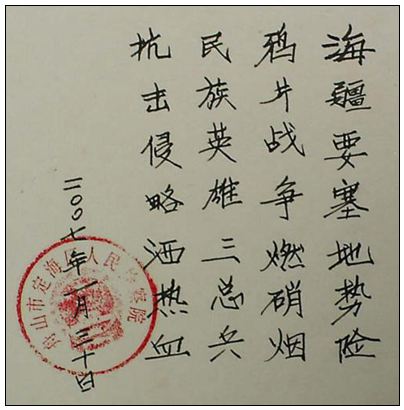 海疆要塞地势险
鸦片战争燃硝烟
民族英雄三总兵
抗击侵略洒热血
二〇〇七年一月三十日
舟山市定海区人民检察院